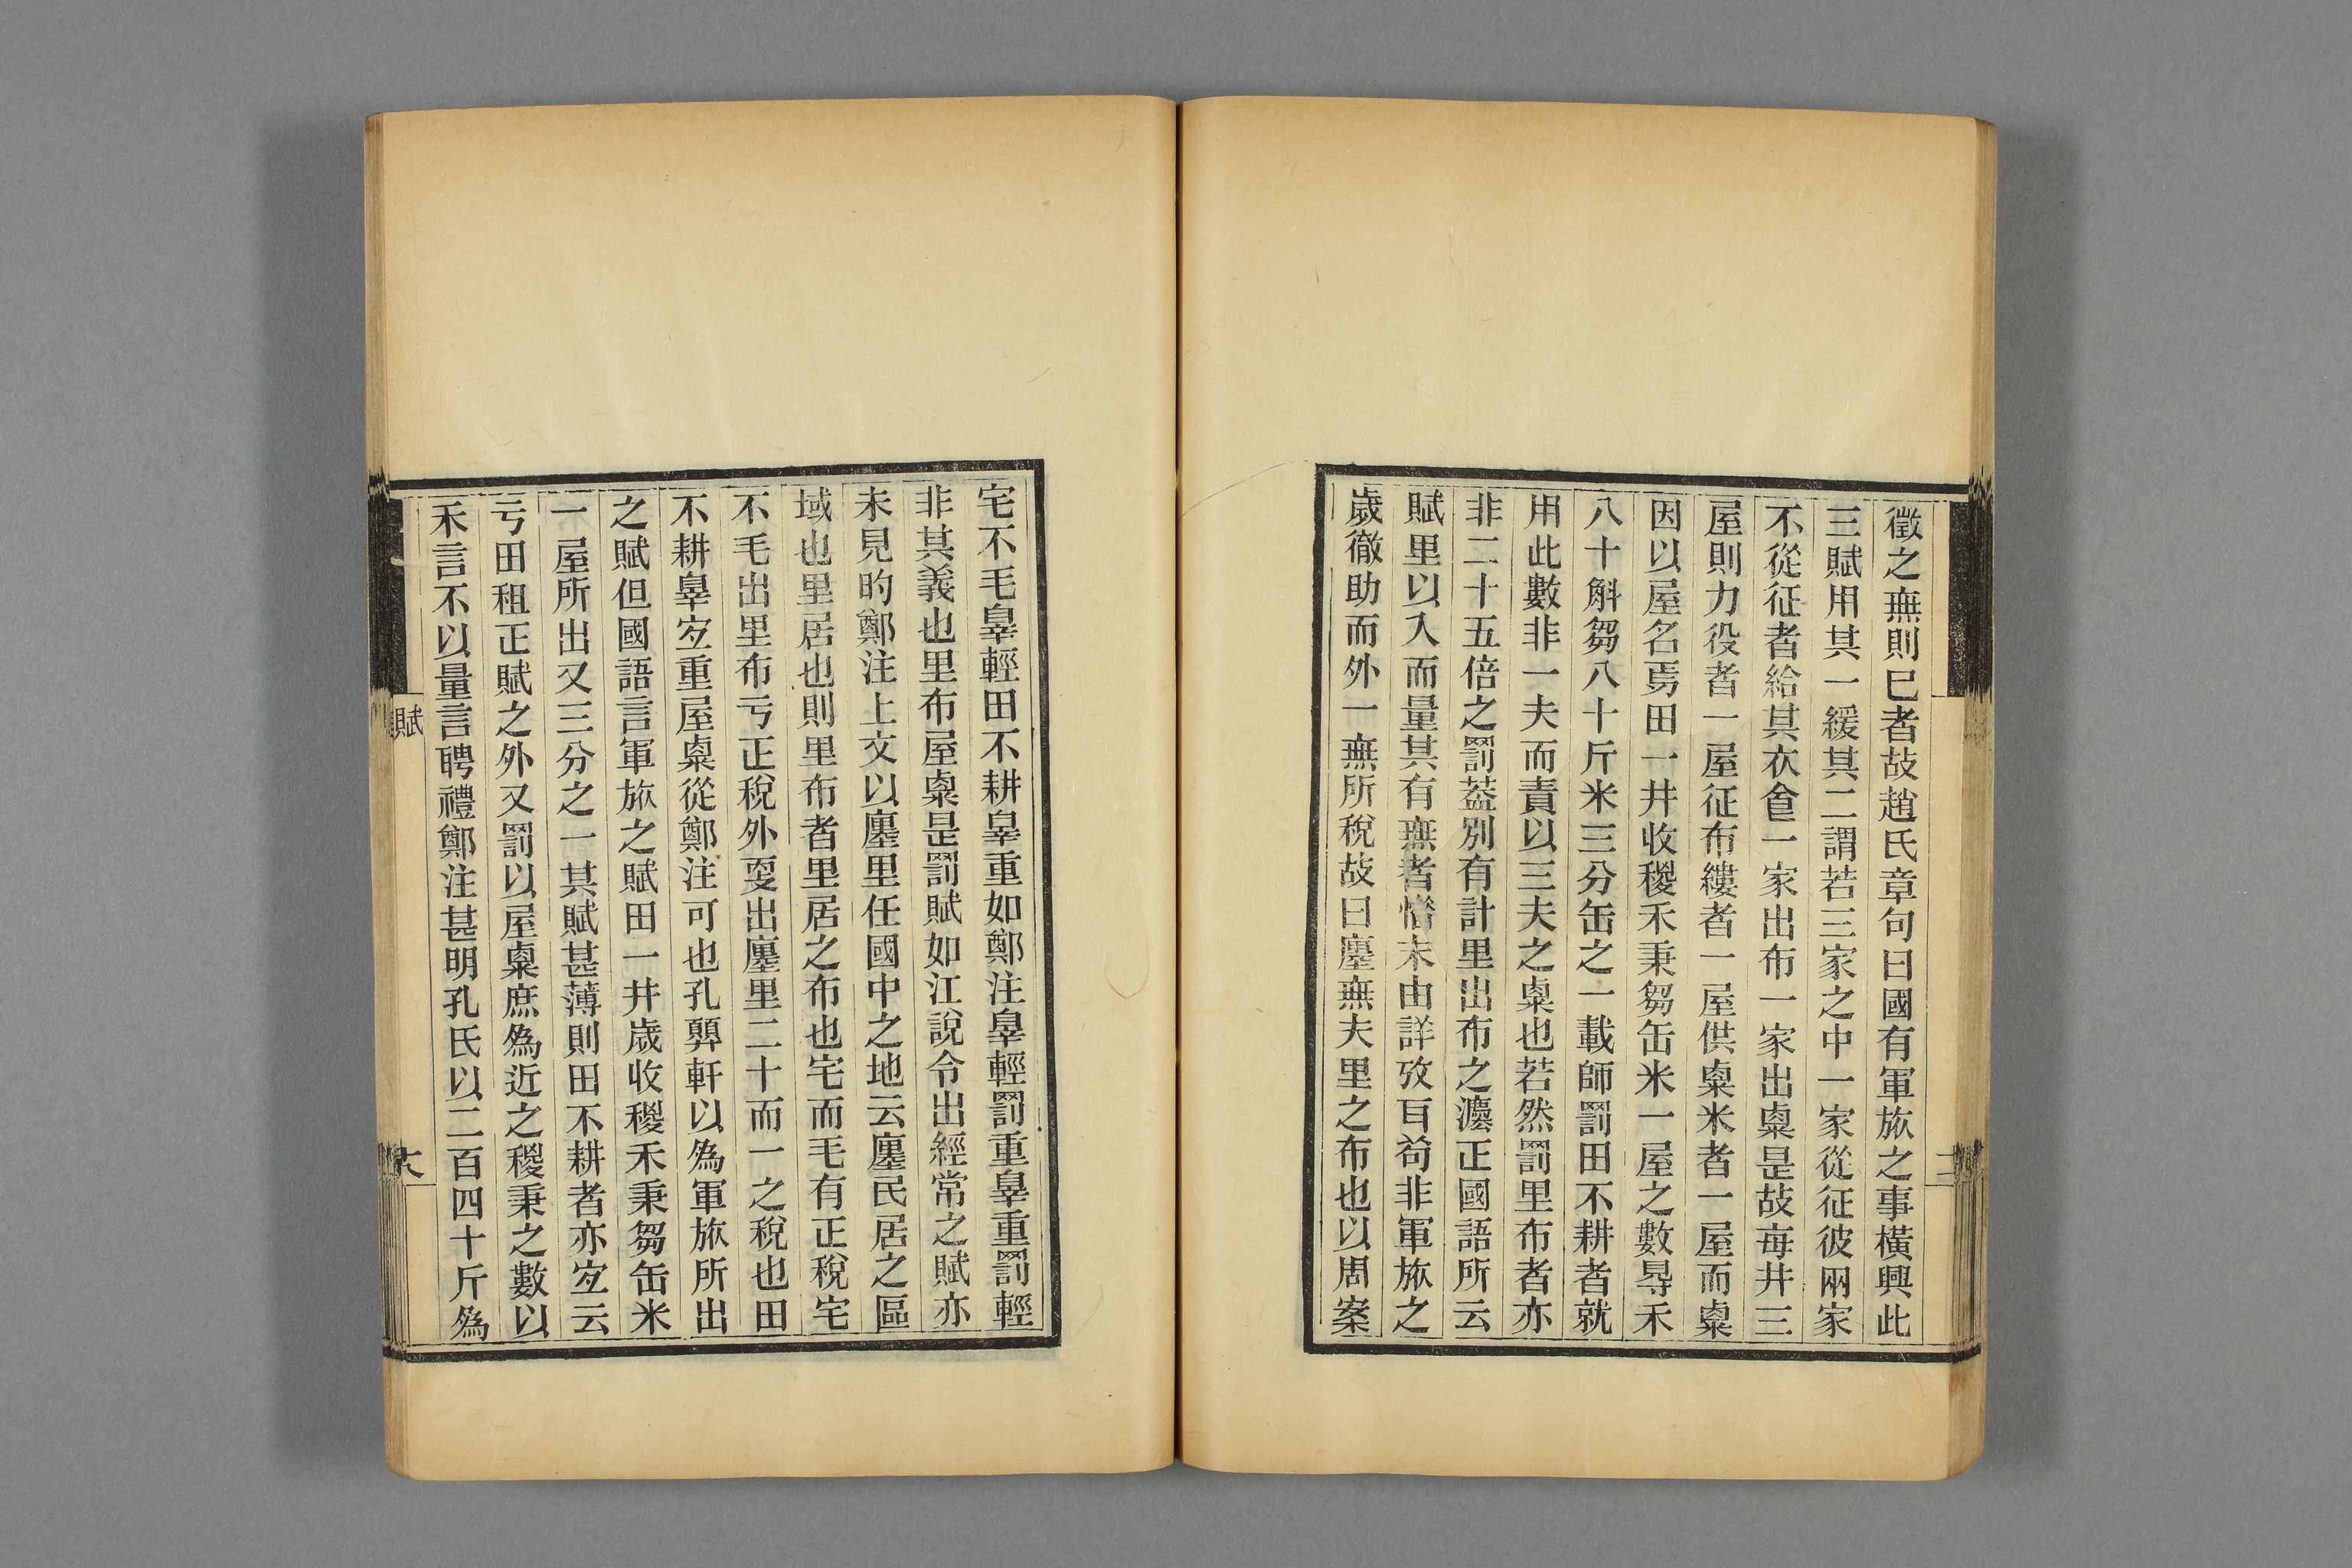 徵之無則已者故趙氏章句曰國有軍旅之事橫興此
三賦用其一緩其二謂若三家之中一家從征彼兩家
不從征者給其衣食一家出布一家出㮚是故每井三
屋則力役者一屋征布縷者一屋供㮚米者一屋而㮚
因以屋名焉田一井收稯禾秉芻缶米一屋之數㝵禾
八十斛芻八十斤米三分缶之一載師罰田不耕者就
用此數非一夫而責以三夫之㮚也若然罰里布者亦
非二十五倍之罰葢別有計里出布之灋正國語所云
賦里以入而量其有無者惜未由詳攷百苟非軍旅之
歲徹助而外一無所稅故曰廛無夫里之布也以周案
宅不毛辠輕田不耕辠重如鄭注辠輕罰重辠重罰輕
非其義也里布屋㮚是罰賦如江說令出經常之賦亦
未見昀鄭注上文以廛里任國中之地云廛民居之區
域也里居也則里布者里居之布也宅而毛有正稅宅
不毛出里布亏正稅外耍出廛里二十而一之稅也田
不耕辠宐重屋㮚從鄭注可也孔顨軒以爲軍旅所出
之賦但國語言軍旅之賦田一井歲收稯禾秉芻缶米
一屋所出又三分之一其賦甚薄則田不耕者亦宐云
亏田租正賦之外又罰以屋㮚庶爲近之稯秉之數以
禾言不以量言聘禮鄭注甚明孔氏以二百四十斤爲
賦